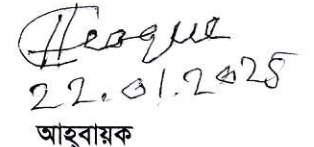 22.01.2025
আহবায়ক